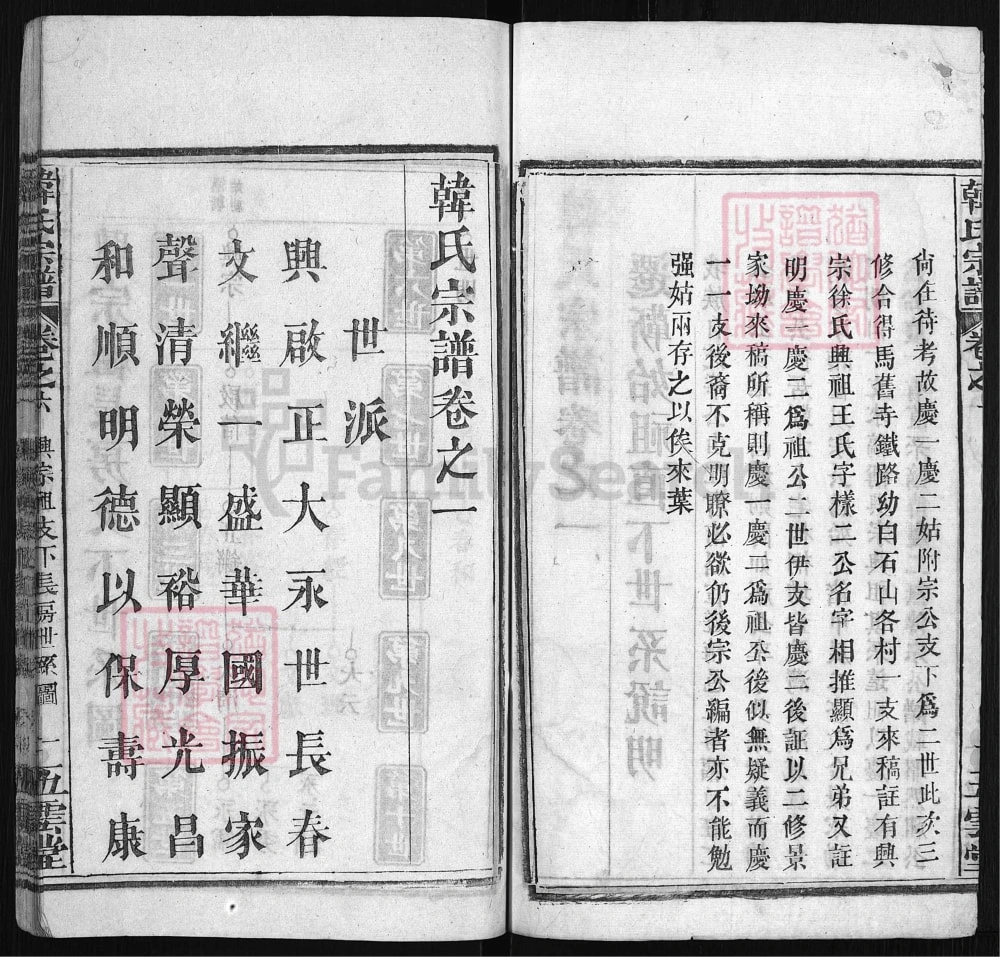 韓氏宗譜
卷之一
五雲堂
尙在待考故慶一慶二姑附宗公支下爲二世此亥三
修合得馬舊寺鐵路幼白石山各村一支來稿註有興
宗徐氏興祖王氏字樣二公名字相推顯爲兄弟又註
明慶一慶二爲祖公二世伊支皆慶二後証以二修景
家坳來稿所稱則慶一慶二爲祖公後似無疑義而慶
一一支後裔不克明瞭必欲仍後宗公編者亦不能勉
强姑兩存之以俟來葉
韓氏宗譜卷之一
世派
興啟正大永世長春
文繼一盛華國振家
聲清榮顯裕厚光昌
和順明德以保壽康
韓氏宗譜
卷之六
興宗祖支下長房世系圖
一
五雲堂
FamilySearch